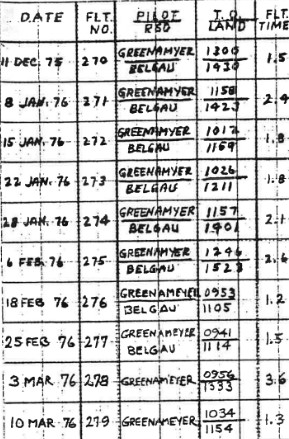 DATE FLT. NO. PILOT RSO T.O. LAND FLT. TIME
11 DEC. 75 270 GREENAMYER BELGAU 1300 1430 1.5
8 JAN. 76 271 GREENAMYER BELGAU 1158 1423 2.4
15 JAN. 76 272 GREENAMYER BELGAU 1012 1159 1.8
22 JAN. 76 273 GREENAMYER BELGAU 1026 1211 1.8
28 JAN. 76 274 GREENAMYER BELGAU 1157 1401 2.1
6 FEB. 76 275 GREENAMYER BELGAU 1246 1523 2.6
18 FEB 76 276 GREENAMEYER BELGAU 0953 1105 1.2
25 FEB 76 277 GREENAMEYER BELGAU 0941 1114 1.5
3 MAR 76 278 GREENAMEYER 0956 1333 3.6
10 MAR 76 279 GREENAMEYER 1034 1154 1.3